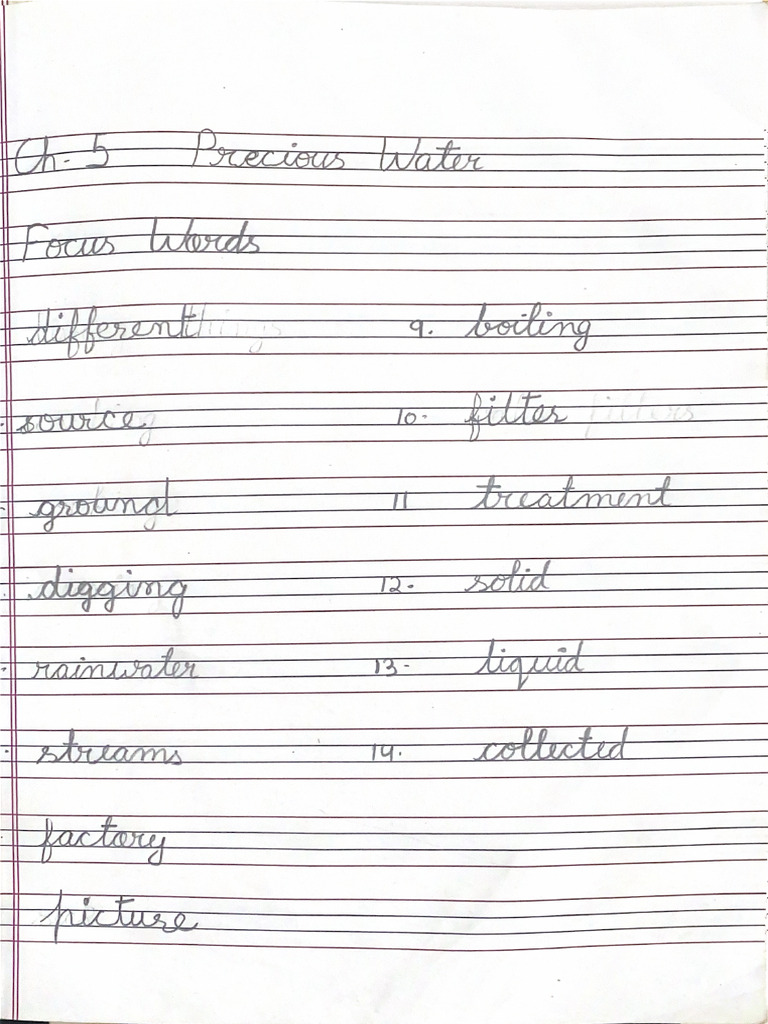 Ch- 5 Precious Water
Focus Words
different 9. boiling
source 10- filter
ground 11 treatment
digging 12- solid
rainwater 13- liquid
streams 14. collected
factory
picture